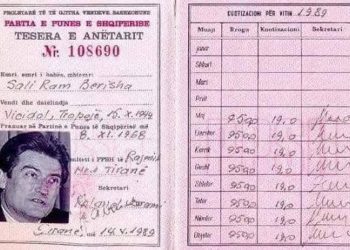 PROLETARË TË TË GJITHA VENDEVE BASHKOHUNI
PARTIA E PUNES E SHQIPERISE
TESERA E ANËTARIT
Nr. 108690
Emri, emri i babës, mbiemri:
Sali Ram Berisha
Vendi dhe datëlindja
Viçidol, Tropojë, 15.X.1944
Pranuar në Partinë e Punës të Shqipërisë më
8.XI.1968
Tiranë
Sekretari
Tiranë, më 14.V.1989
KUOTIZACIONI PËR VITIN 1989
Muaj Rroga Kuotizacioni Sekretari
Janar
Shkurt
Mars
Prill
Maj 9590 19,0
Qershor 9590 19,0
Korrik 9590 19,0
Gusht 9590 19,0
Shtator 9590 19,0
Tetor 9590 19,0
Nëntor 9590 19,0
Dhjetor 9590 19,0